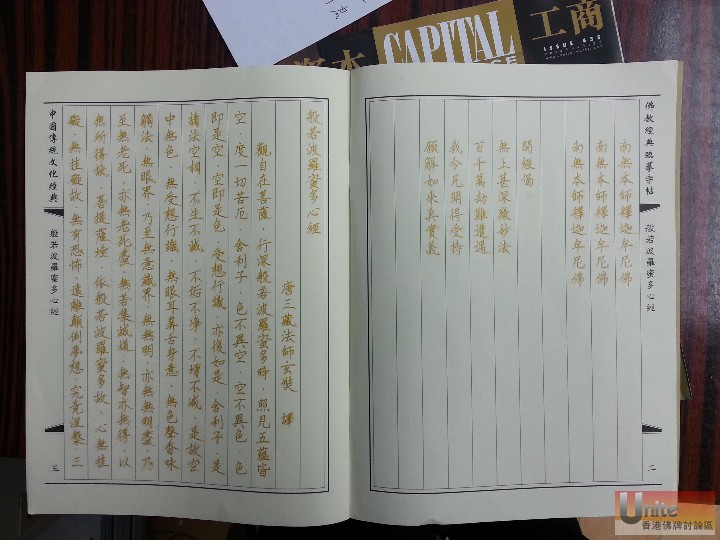 資本
CAPITAL
工商
ISSUE 436
佛教經典臨摹字帖
般若波羅蜜多心經
二
南無本師釋迦牟尼佛
南無本師釋迦牟尼佛
南無本師釋迦牟尼佛
開經偈
無上甚深微妙法
百千萬劫難遭遇
我今見聞得受持
願解如來真實義
般若波羅蜜多心經
唐三藏法師玄奘 譯
觀自在菩薩．行深般若波羅蜜多時．照見五蘊皆
空．度一切苦厄．舍利子．色不異空．空不異色．色
即是空．空即是色．受想行識．亦復如是．舍利子．是
諸法空相．不生不滅．不垢不淨．不增不減．是故空
中無色．無受想行識．無眼耳鼻舌身意．無色聲香味
觸法．無眼界．乃至無意識界．無無明．亦無無明盡．乃
至無老死．亦無老死盡．無苦集滅道．無智亦無得．以
無所得故．菩提薩埵．依般若波羅蜜多故．心無挂
礙．無挂礙故．無有恐怖．遠離顛倒夢想．究竟涅槃．三
中国傳統文化經典
般若波羅蜜多心經
三
Unite
香港佛牌討論區